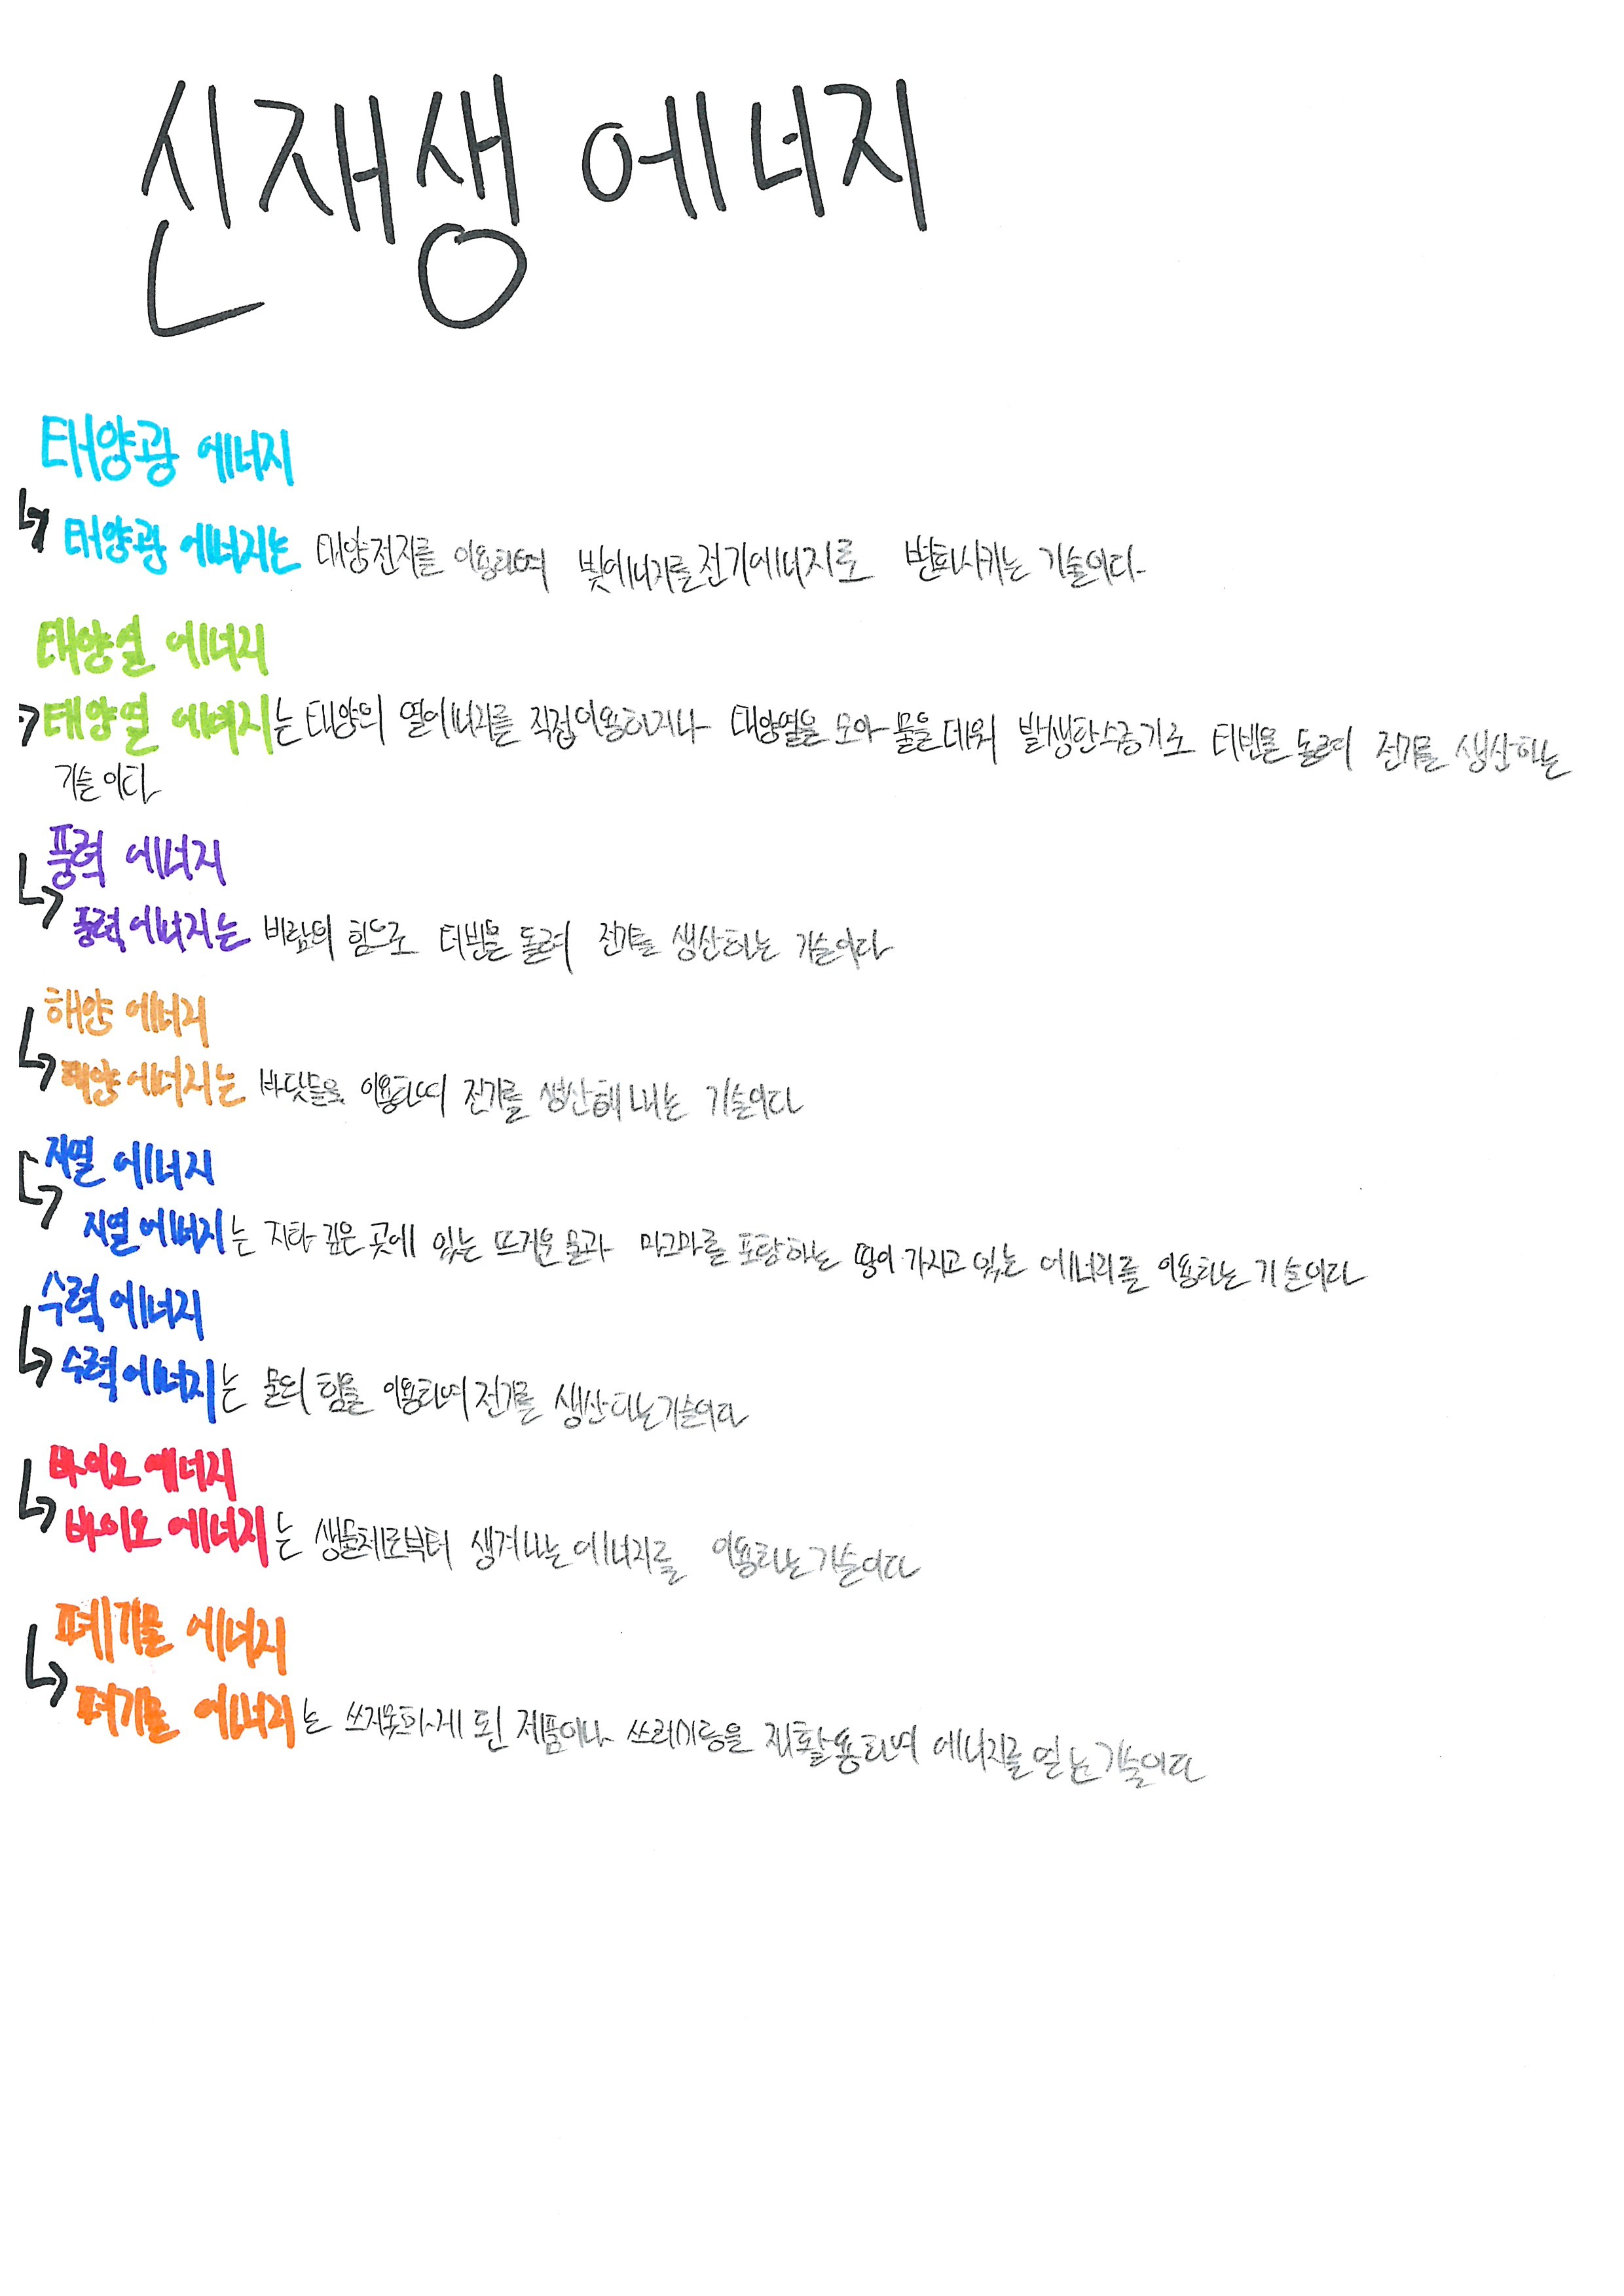 신재생 에너지
태양광 에너지
태양광 에너지는 태양전지를 이용하여 빛에너지를 전기에너지로 변화시키는 기술이다.
태양열 에너지
태양열 에너지는 태양의 열에너지를 직접이용하거나 태양열을 모아 물을 데워 발생탄수증기로 터빈을 돌려 전기를 생산하는
기술이다
풍력 에너지
풍력에너지는 바람의 힘으로 터빈을 돌려 전기를 생산하는 기술이다
해양 에너지
해양에너지는 바닷물을 이용하여 전기를 생산해내는 기술이다
지열 에너지
지열에너지는 지하 깊은 곳에 있는 뜨거운 물과 마그마를 포함하는 땅이 가지고 있는 에너지를 이용하는 기술이다
수력 에너지
수력에너지는 물의 힘을 이용하여 전기를 생산하는기술이다
바이오 에너지
바이오 에너지는 생물체로부터 생겨나는 에너지를 이용하는기술이다
폐기물 에너지
폐기물 에너지는 쓰지못하게 된 제품이나 쓰레기등을 재활용하여 에너지를 얻는기술이다